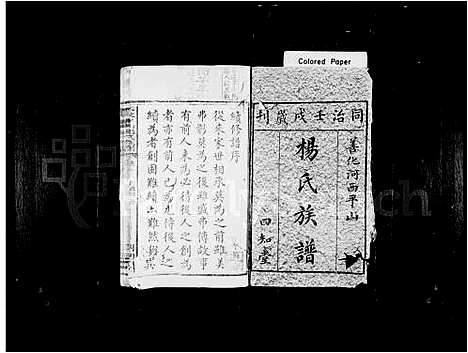 Colored Paper
同治壬戌歲刊
善化河西平山
楊氏族譜
四知堂
續修譜序
從來家世相承莫為之前雖美
弗彰莫為之後雖盛弗傳故事
有前人未為必待後人之創為
者亦有前人已為尤待後人之
續為者創固難續亦難然與其